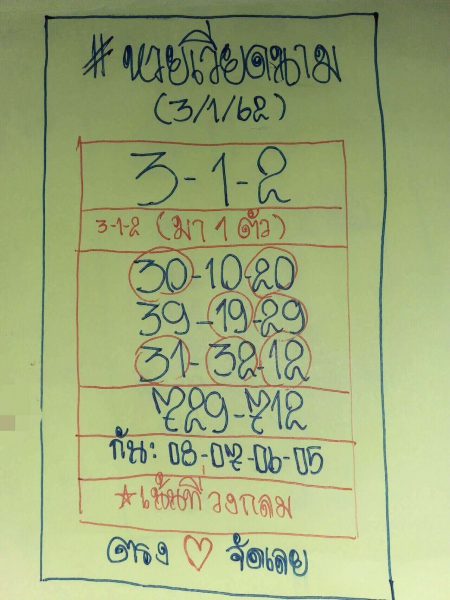 #หวยเวียดนาม
(3/1/62)
3-1-2
3-1-2 (มา 1 ตัว)
30-10-20
39-19-29
31-32-12
729-712
กัน: 08-07-06-05
☆เน้นที่วงกลม
ตรง ♡ จัดเลย